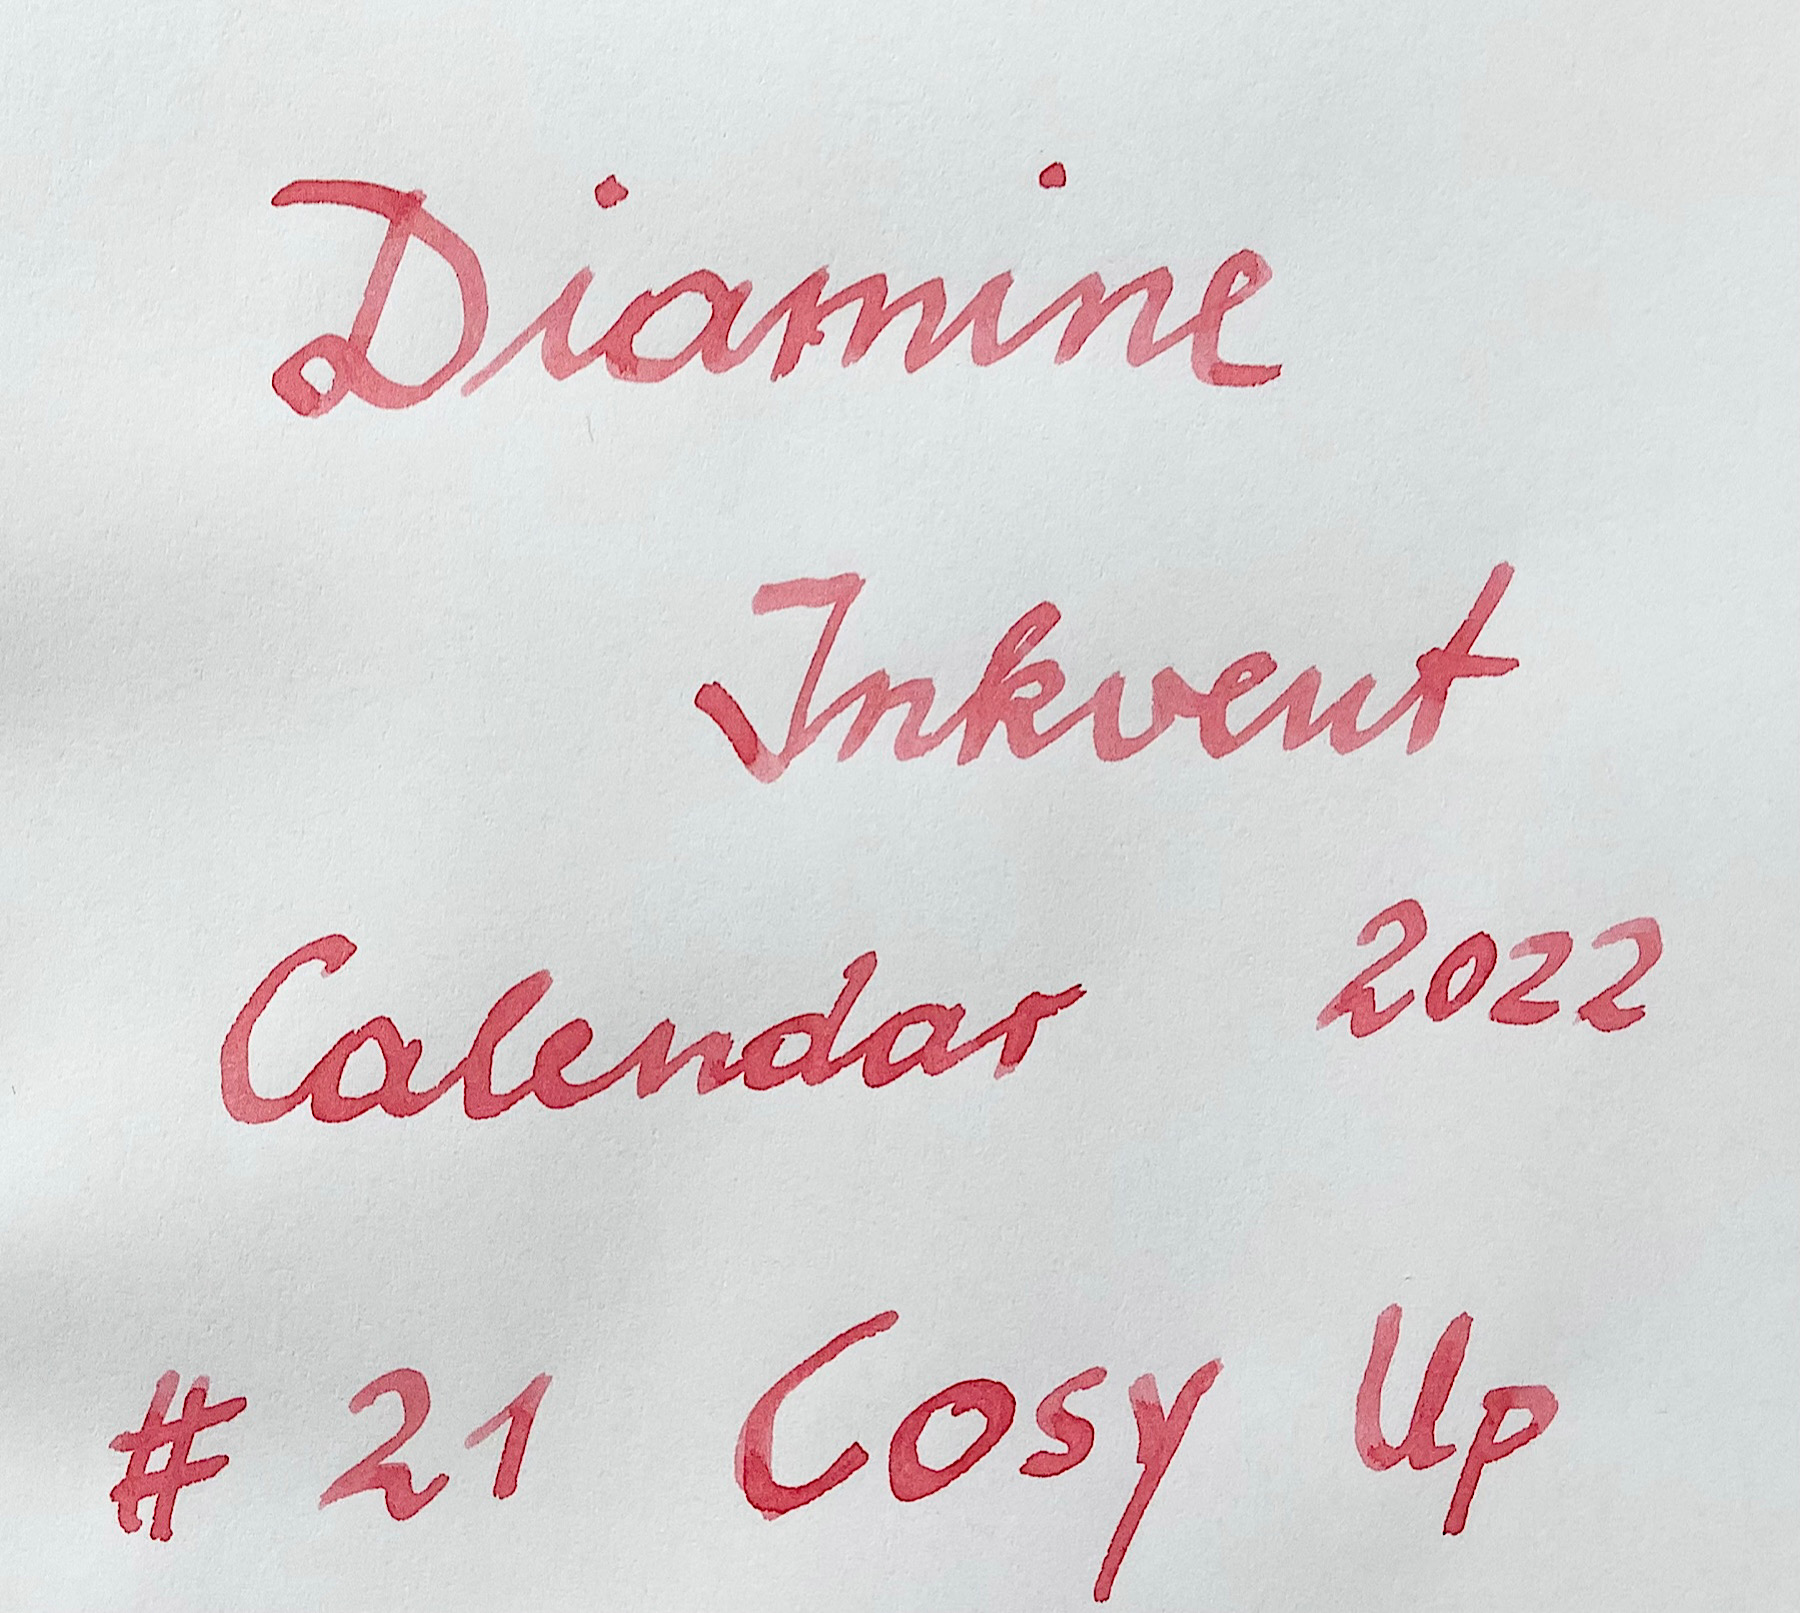 Diamine
Inkvent
Calendar 2022
# 21 Cosy Up